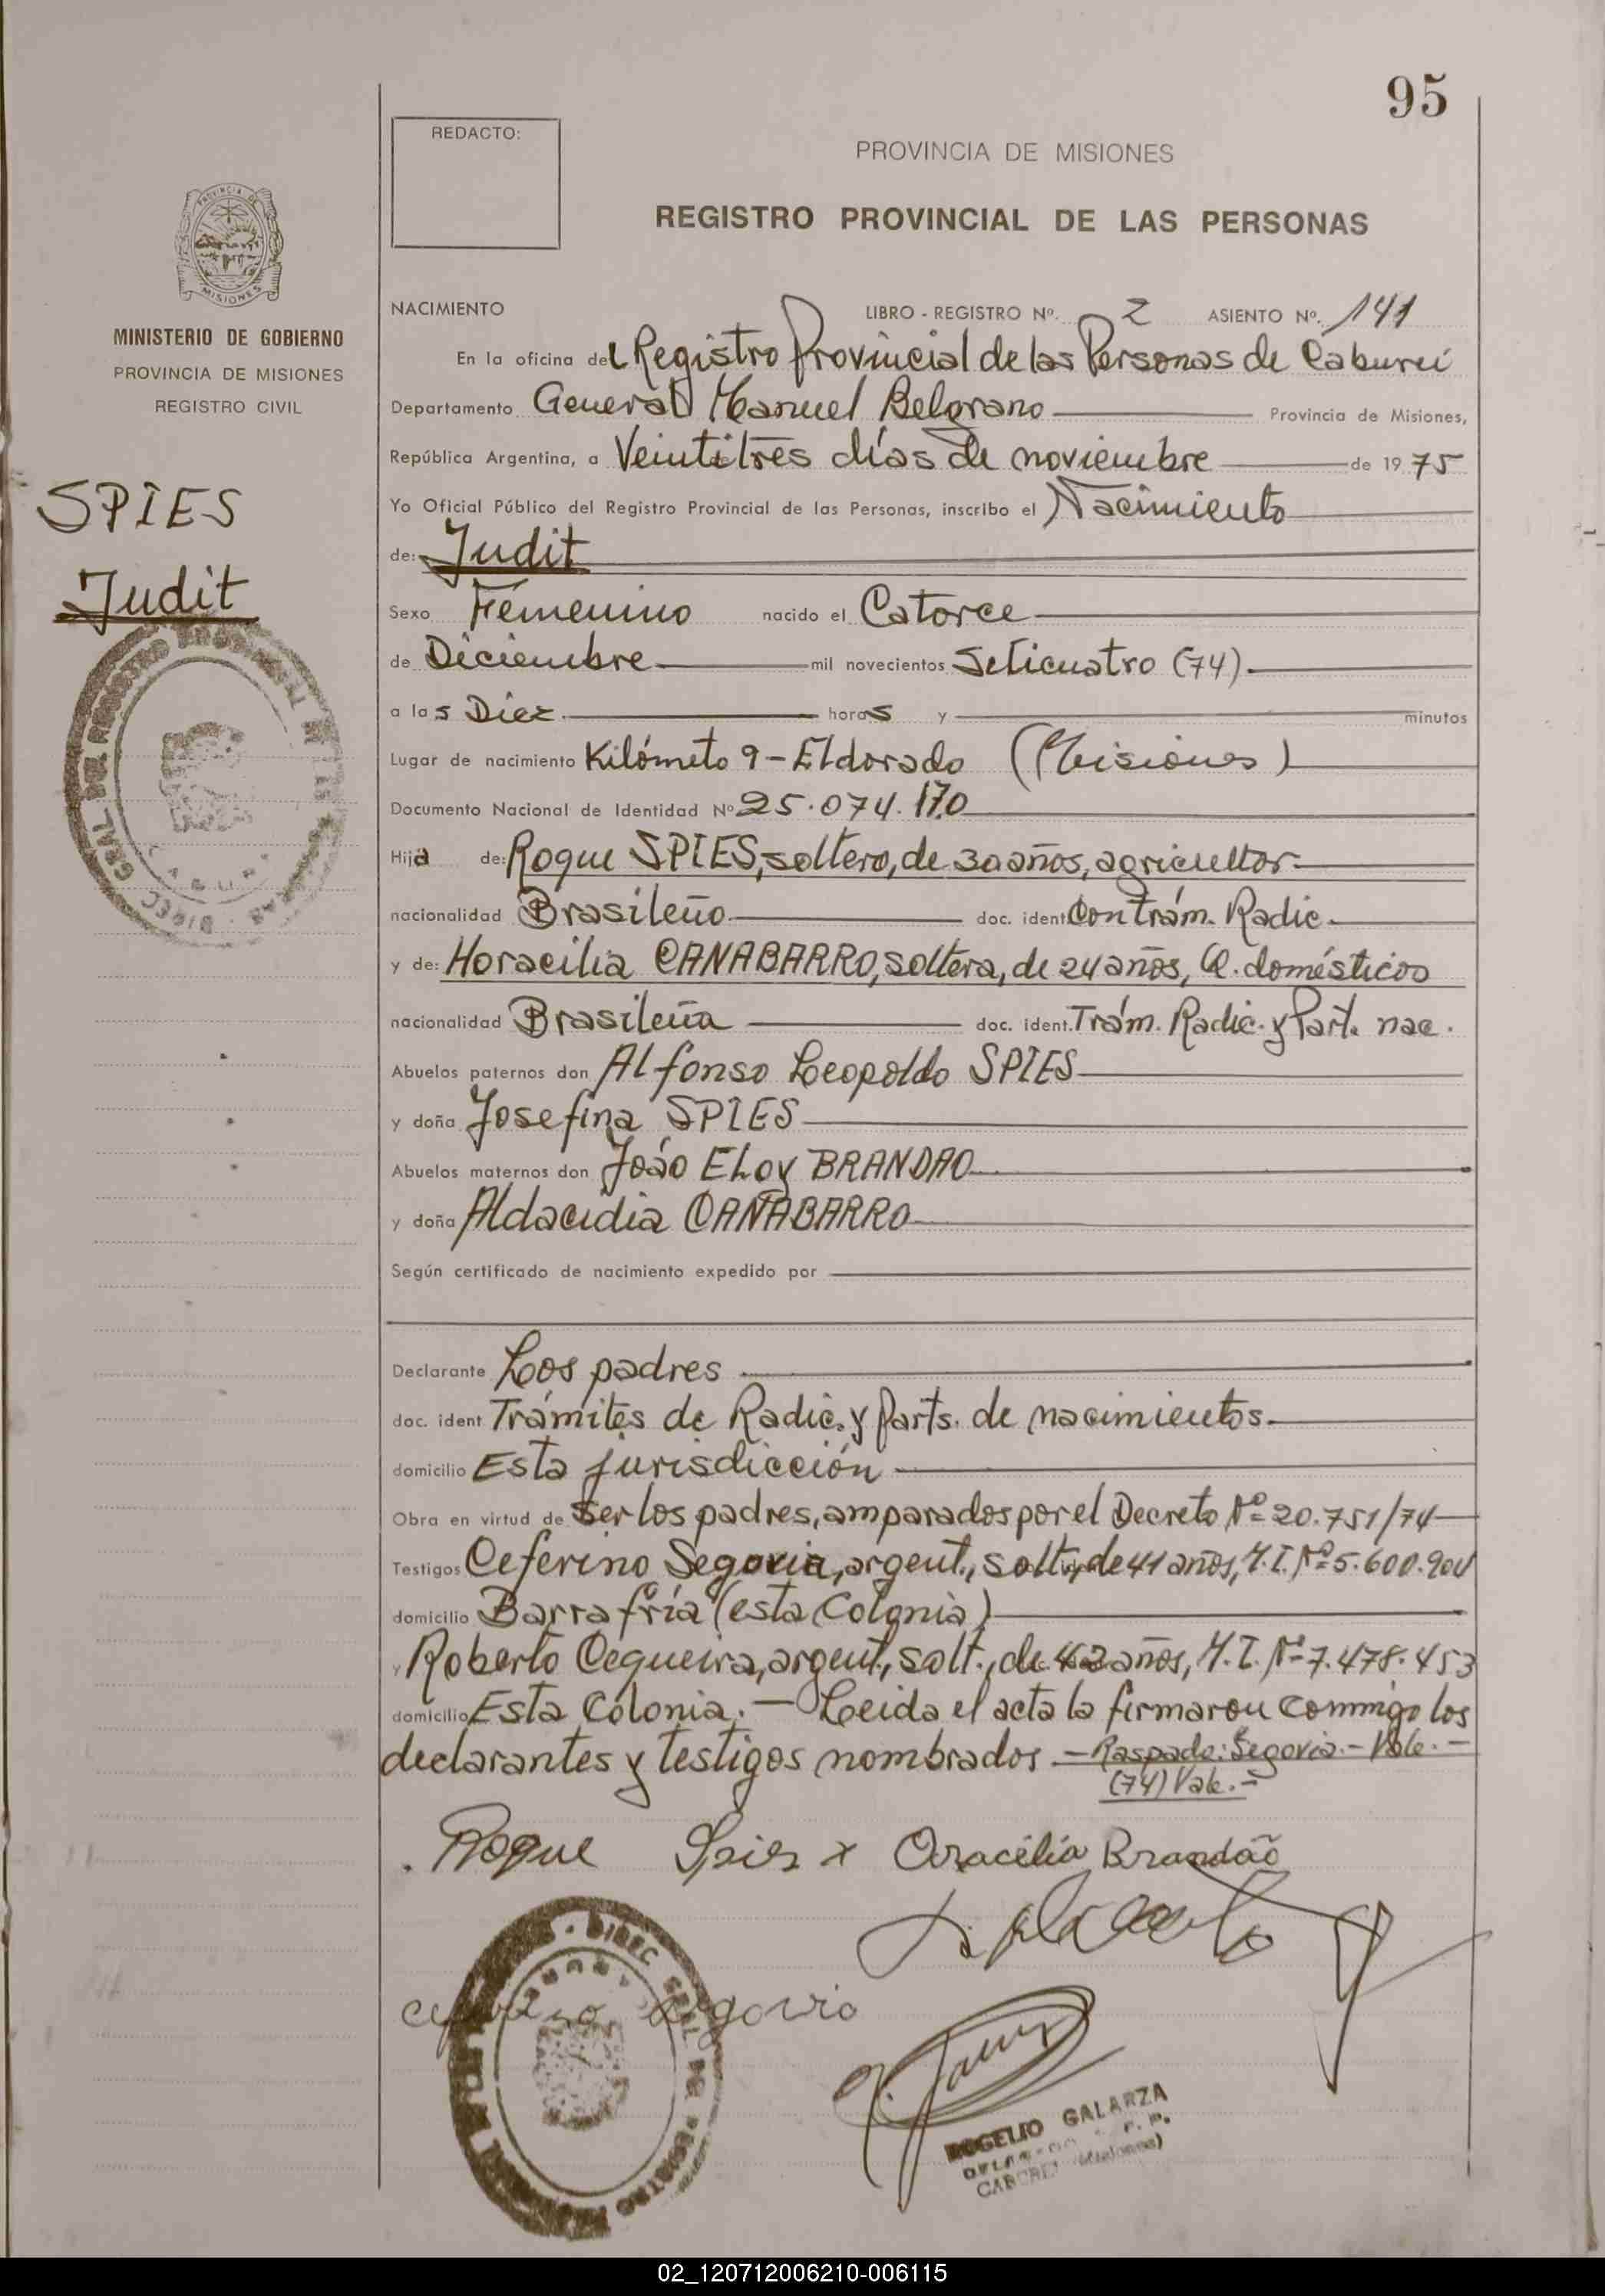 95
REDACTO:
PROVINCIA DE MISIONES
REGISTRO PROVINCIAL DE LAS PERSONAS
PROVINCIA DE
MISIONES
MINISTERIO DE GOBIERNO
PROVINCIA DE MISIONES
REGISTRO CIVIL
SPIES
Judit
NACIMIENTO LIBRO - REGISTRO Nº. 2 ASIENTO Nº. 141
En la oficina del Registro Provincial de las Personas de Caburei
Departamento General Manuel Belgrano Provincia de Misiones,
República Argentina, a Veintitrés días de noviembre de 1975
Yo Oficial Público del Registro Provincial de las Personas, inscribo el Nacimiento
de: Judit
Sexo Femenino nacido el Catorce
de Diciembre mil novecientos Seticuatro (74).
a las Diez horas y minutos
Lugar de nacimiento Kilómeto 9 - Eldorado (Misiones)
Documento Nacional de Identidad Nº 25.074.170
Hija de: Roque SPIES, soltero, de 30 años, agricultor.
nacionalidad Brasileño doc. ident. Con Trám. Radic.
y de: Horacilia CANABARRO, soltera, de 24 años, Q. domésticos
nacionalidad Brasileña doc. ident. Trám. Radic. y Part. nac.
Abuelos paternos don Alfonso Leopoldo SPIES
y doña Josefina SPIES
Abuelos maternos don João ELOY BRANDAO
y doña Aldacidia CANABARRO
Según certificado de nacimiento expedido por
Declarante Los padres
doc. ident Trámites de Radic. y Parts. de nacimientos.
domicilio Esta jurisdicción
Obra en virtud de Ser los padres, amparados por el Decreto Nº 20.751/74
Testigos Ceferino Segovia, argent., solt., de 41 años, M.I. Nº 5.600.904
domicilio Barra fría (esta Colonia)
y Roberto Cequeira, argent., solt., de 42 años, M.I. Nº 7.478.453
domicilio Esta Colonia. - Leida el acta la firmaron conmigo los
declarantes y testigos nombrados - Raspado: Segovia. - Vale. -
(74) Vale. -
Roque Spies x Oracilia Brandão
Segovia
ROGELIO GALARZA
(Misiones)
02_120712006210-006115